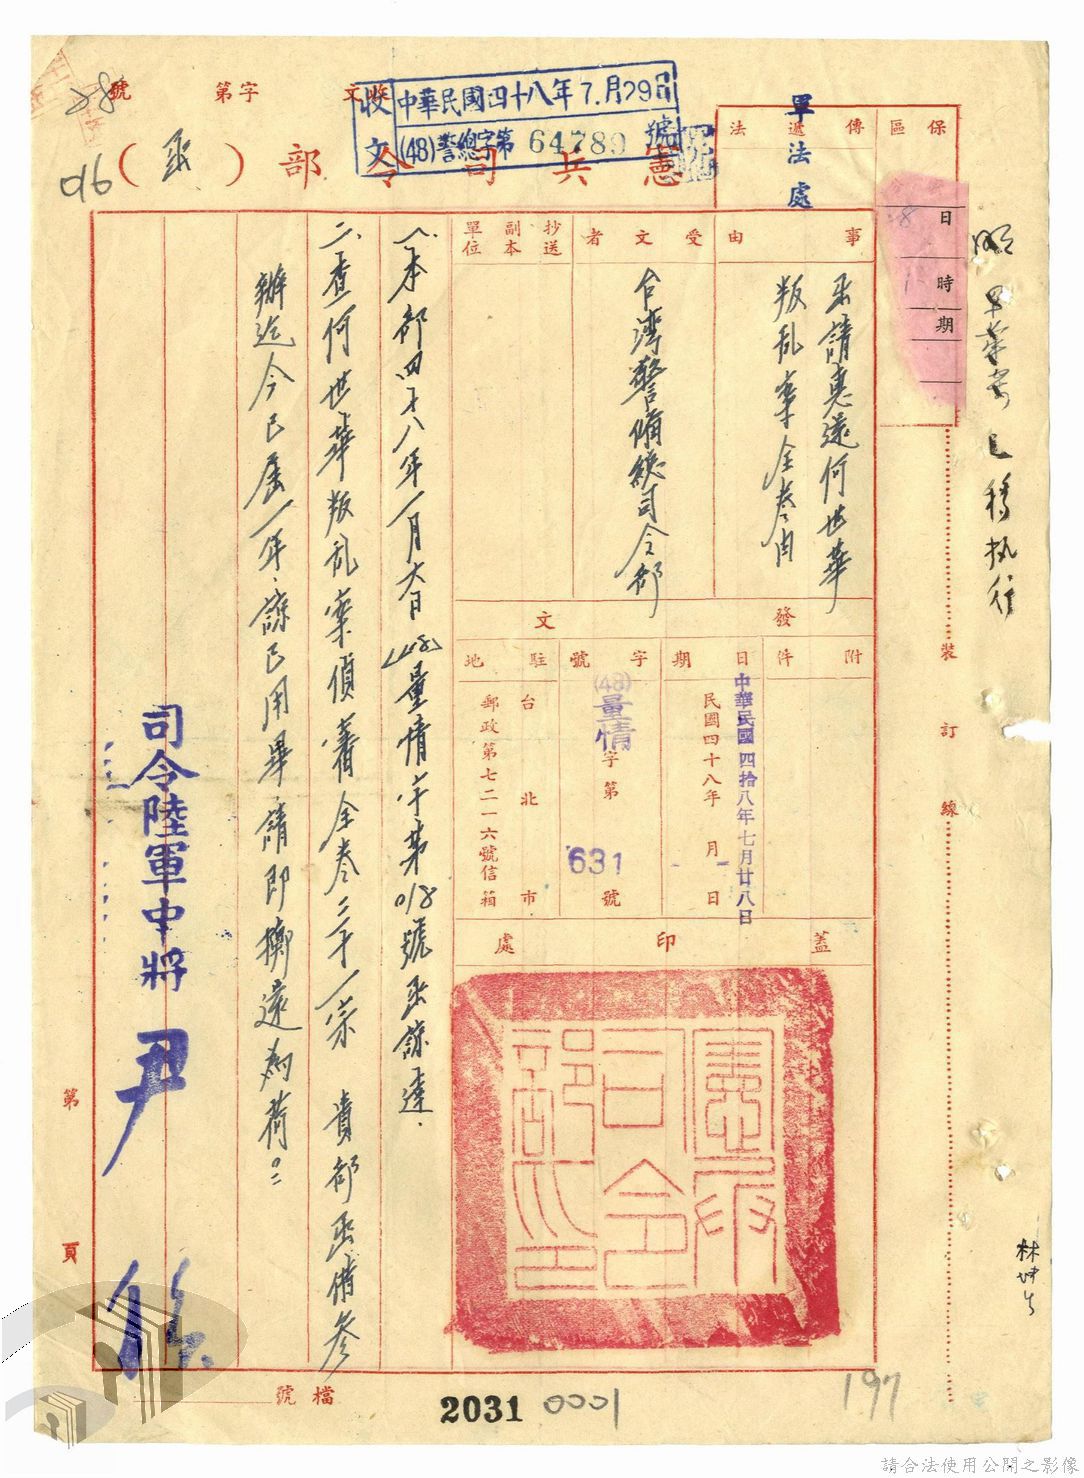 憲兵司令部(函)
文
字第
號
收文
中華民國四十八年7.月29日
(48)警總字第64789號
軍法處
傳遞法
保區
日
時
期
事由
函請惠還何世華
叛乱案全叄肉
受文者
台灣警備總司令部
抄送
副本
單位
發文
附件
日期
中華民國四拾八年七月廿八日
民國四十八年 月 日
字號
(48)量情字第631號
駐地
台北市
郵政第七二一六號信箱
蓋印處
憲兵司令部印
一、本部四十八年一月六日(48)量情字第018號函諒達.
二、查何世華叛乱案偵審全卷二十一宗 貴部函借參
辦迄今已屆一年、諒已用畢請即擲還為荷。
司令陸軍中將 尹
裝訂線
第
頁
檔號
2031
0001
197
016
林坤生
已移执行
請合法使用公開之影像